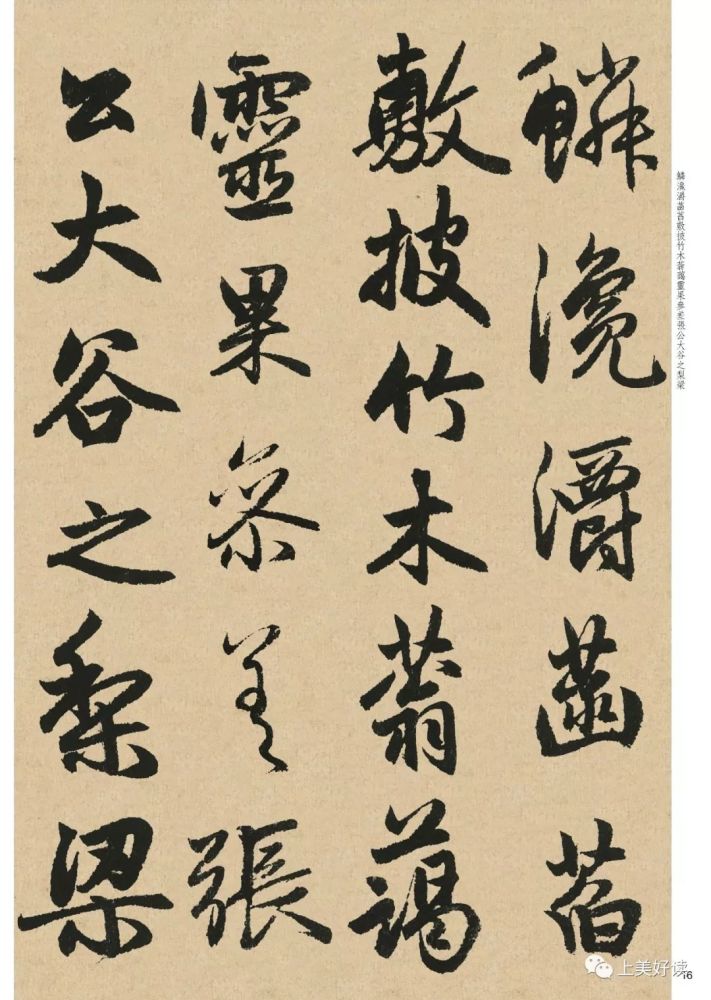 鱗瀺灂菡萏
敷披竹木蓊藹
靈果參差張
公大谷之梨梁
鱗瀺灂菡萏敷披竹木蓊藹靈果參差張公大谷之梨梁
上美好读
16